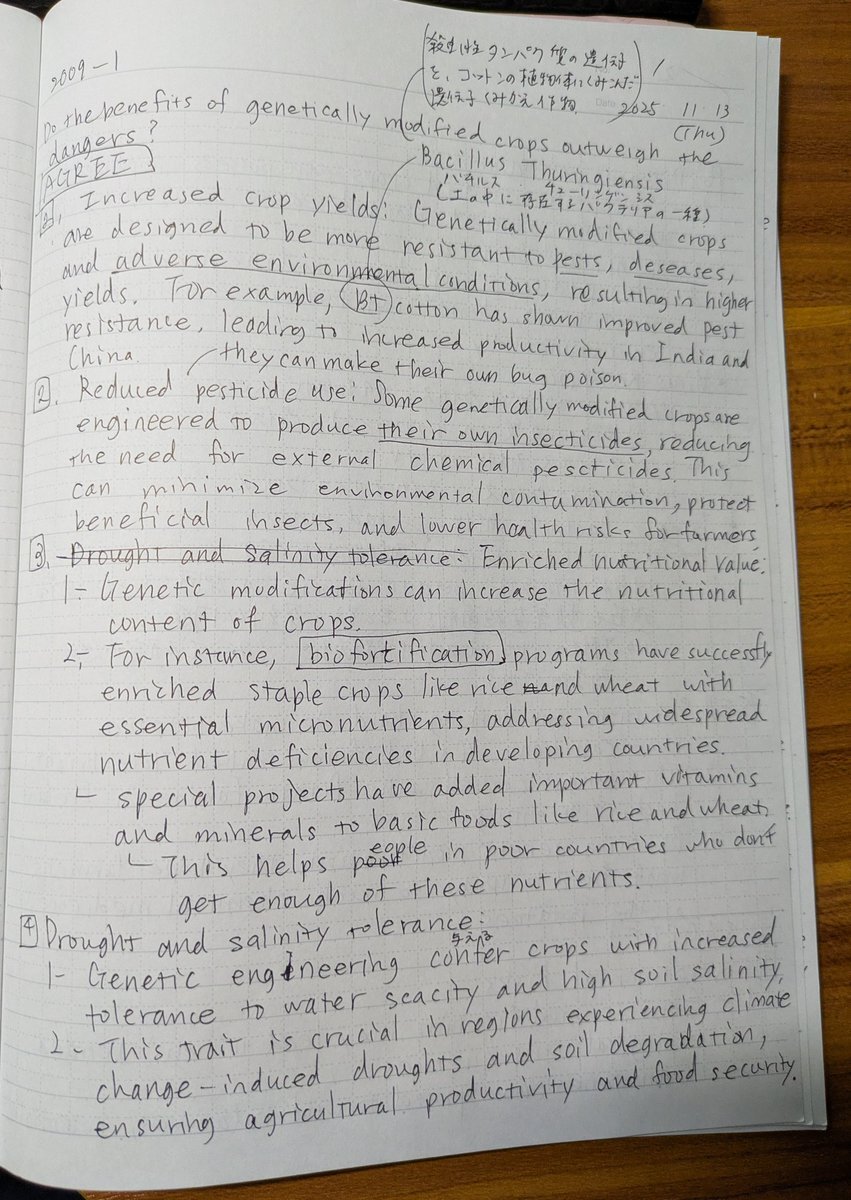 2009-1
(殺虫性タンパク質の遺伝子
を、コットンの植物体にくみこんだ
遺伝子くみかえ作物)
Date 2025 11.13
(Thu)
Do the benefits of genetically modified crops outweigh the
dangers?
AGREE
Bacillus Thuringiensis
バチルス チューリンゲンシス
(土の中に存在するバクテリアの一種)
1. Increased crop yields: Genetically modified crops
are designed to be more resistant to pests, deseases,
and adverse environmental conditions, resulting in higher
yields. For example, Bt cotton has shown improved pest
resistance, leading to increased productivity in India and
China.
they can make their own bug poison.
2. Reduced pesticide use: Some genetically modified crops are
engineered to produce their own insecticides, reducing
the need for external chemical pescticides. This
can minimize environmental contamination, protect
beneficial insects, and lower health risks for farmers.
3. Drought and Salinity tolerance: Enriched nutritional value:
1- Genetic modifications can increase the nutritional
content of crops.
2- For instance, biofortification programs have successfly
enriched staple crops like rice and wheat with
essential micronutrients, addressing widespread
nutrient deficiencies in developing countries.
└ special projects have added important vitamins
and minerals to basic foods like rice and wheat.
└ This helps people in poor countries who don't
get enough of these nutrients.
4 Drought and salinity tolerance:
与える
1- Genetic engineering confer crops with increased
tolerance to water scacity and high soil salinity.
2- This trait is crucial in regions experiencing climate
change-induced droughts and soil degradation,
ensuring agricultural productivity and food security.